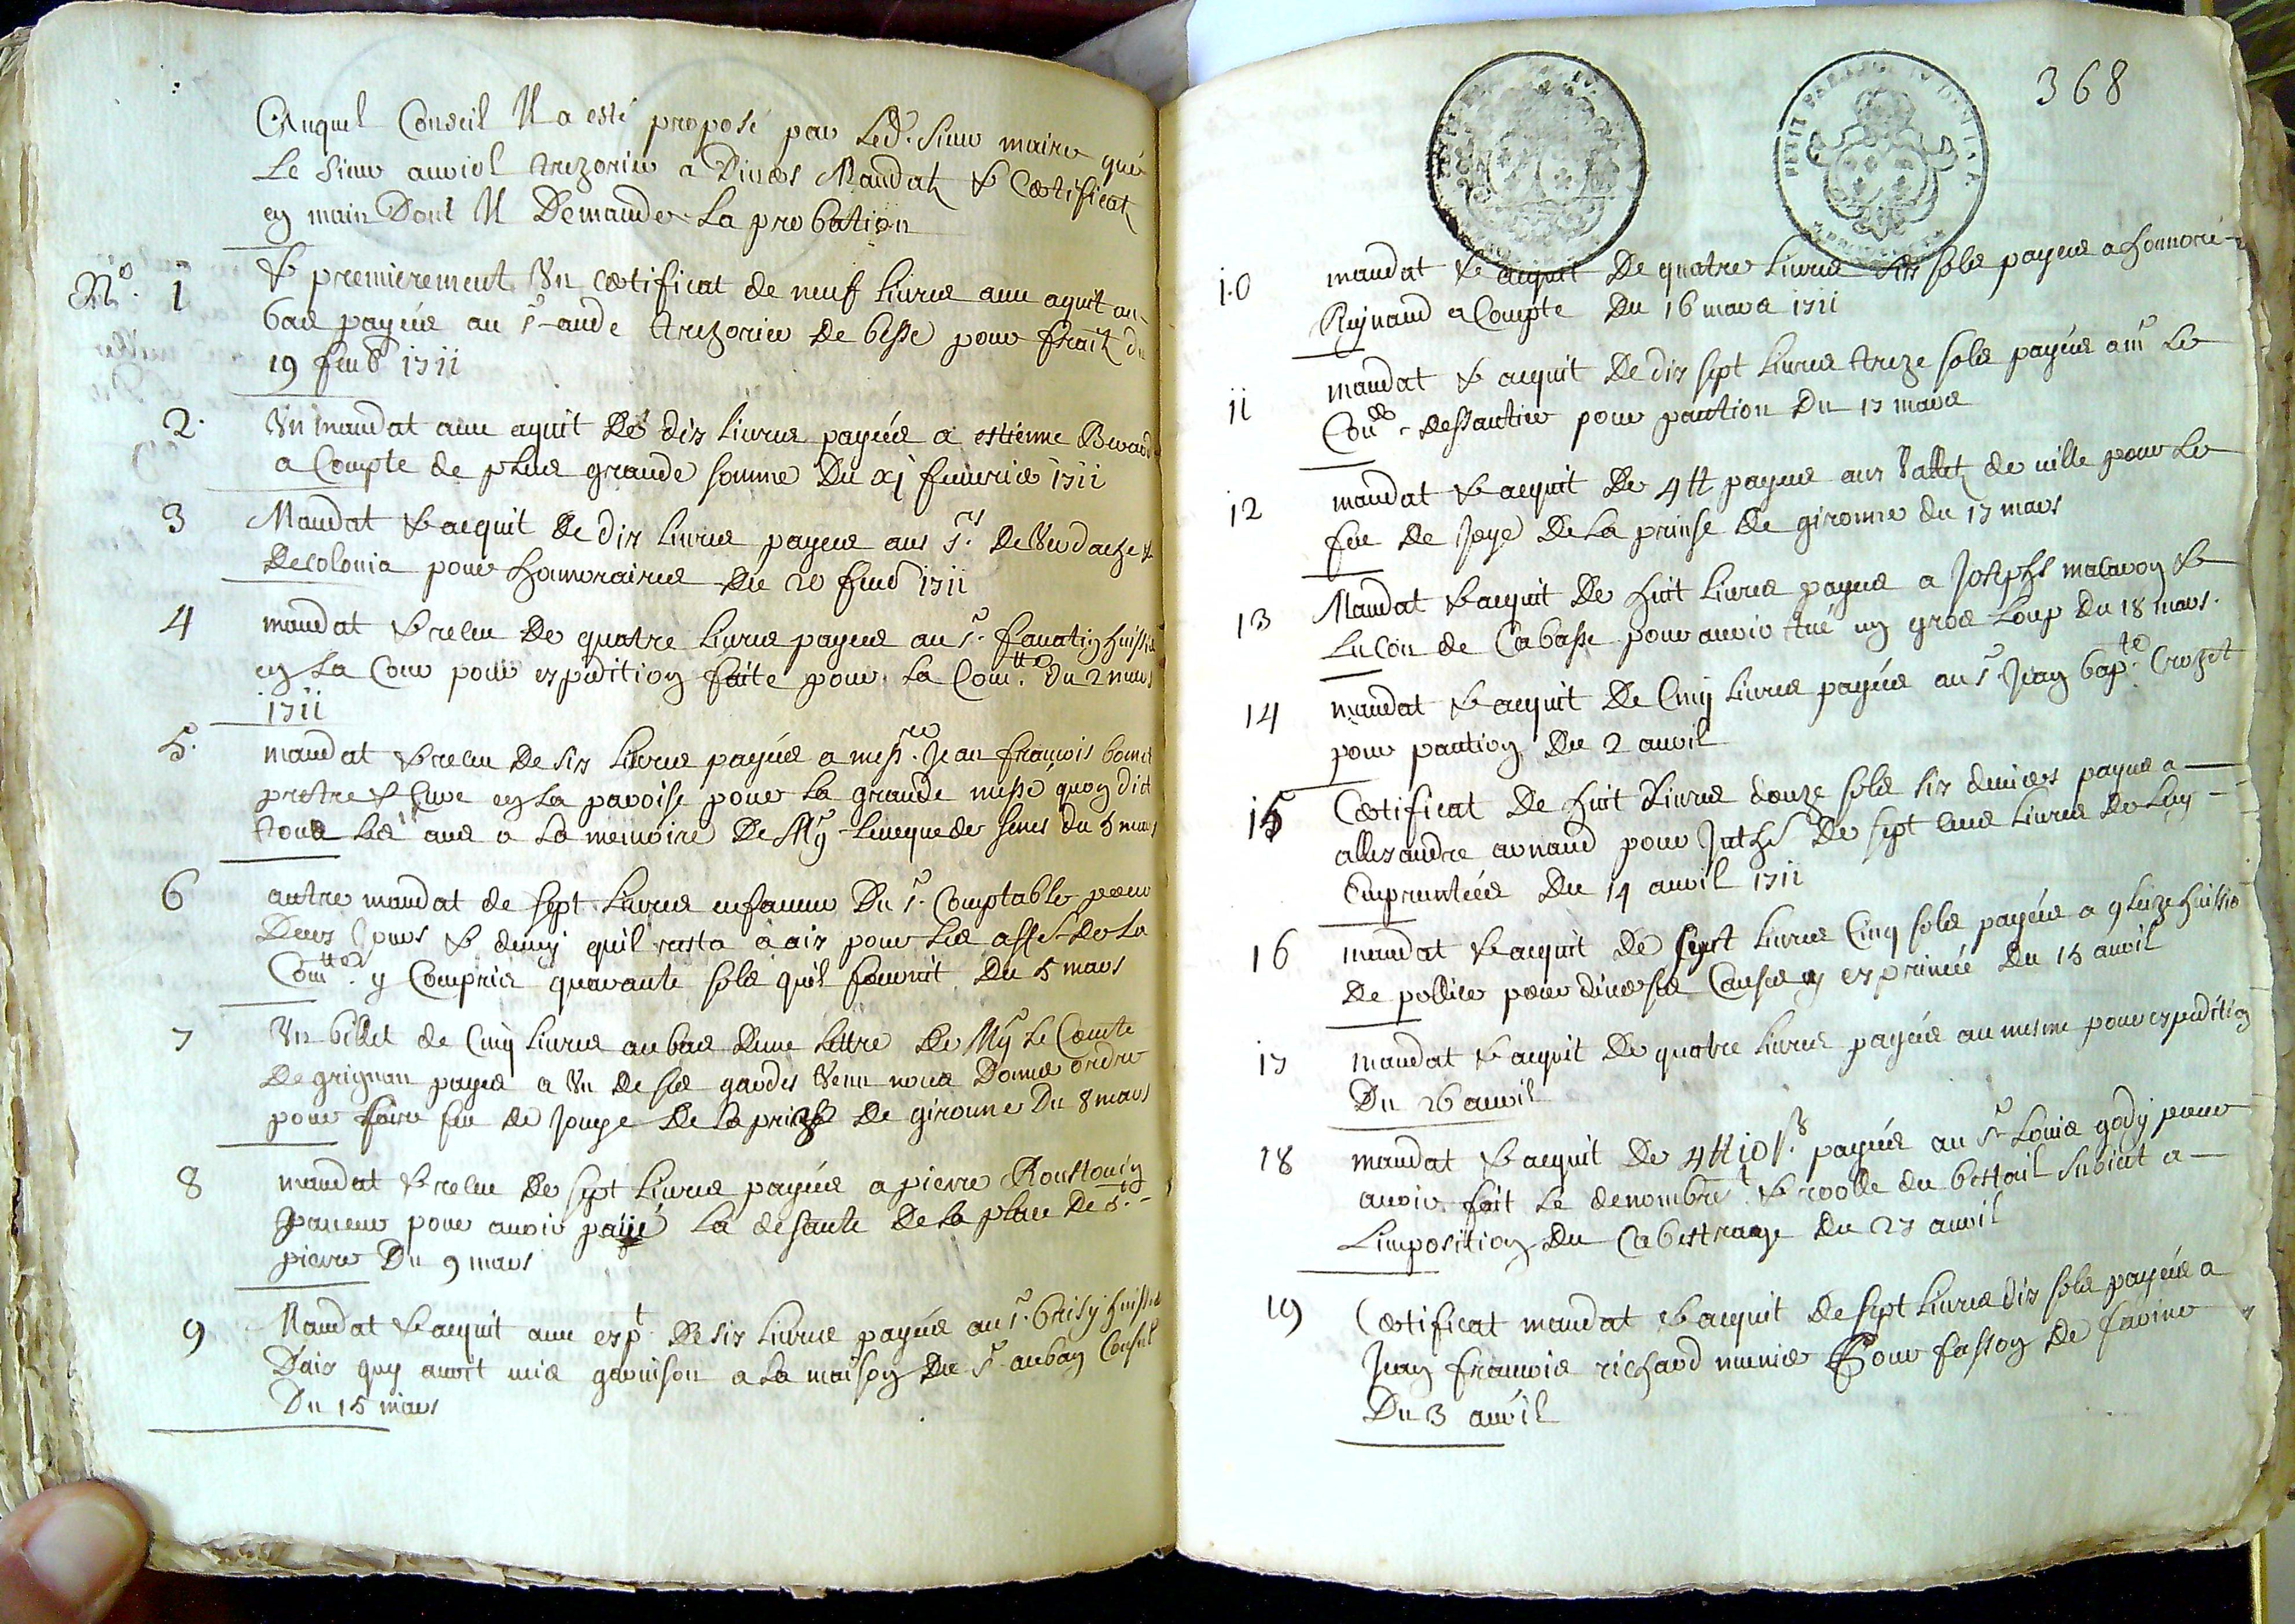 Auquel Conseil Il a esté proposé par Led. Sieur maire que
Le Sieur auriol trezorier a Divers Mandatz & Certificatz
en main Dont Il Demande La probation
N.º 1 & premierement Un certificat de neuf Livres avec aquit au
bas payées au s.r aude trezorier de besse pour fraitz du
19 feu.r 1711
2. Un mandat avec aquit de dix Livres payées a estienne Berard
a Compte de plus grande somme Du xj feuvrier 1711
3 Mandat & acquit de dix Livres payées aux s.rs De Verdache &
Decolonia pour honnoraires du 20 feu.r 1711
4 mandat & receu de quatre Livres payées au s.r fanatin huissier
en La Cour pour expedition faite pour La Com.tté du 2 mars
1711
5. mandat & receu de six Livres payées a mess.re Jean francois
prestre & Cure en La paroisse pour La grande messe quon dict
tous Les ans a La memoire De Mgr Leveque de Senes du 5 mars
6 autre mandat de sept Livres enfaveur Du s.r Comptable pour
Deux Jours & demy quil resta a aix pour Les aff.es De La
Com.tté y Compris quarante sols quil fournit Du 5 mars
7 Un billet de Cinq Livres au bas dune Lettre De Mgr Le Comte
De grignan payées a Un de ses gardes Venu nous Donner ordre
pour faire feu de Joye De La prinse De gironne Du 8 mars
8 mandat & receu de sept Livres payées a pierre Roustouin
paveur pour avoir pavé La desante De La place De S.t
pierre Du 9 mars
9 Mandat & acquit avec exp.t De six Livres payées au s.r brisy huissier
Daix quy avoit mis garnison a La maison Du s.r auban Consul
Du 15 mars
368
PETIT PAPIER
10 mandat & acquit De quatre Livres dix sols payées a honnoré
Reynaud a Compte Du 16 mars 1711
11 mandat & acquit De dix sept Livres treze sols payées a m.r Le
Dessautier pour pantion Du 17 mars
12 mandat & acquit De 4 tt payées aux Valletz de ville pour Le
feu De Joye De La prinse De gironne du 17 mars
13 Mandat & acquit De huit Livres payées a Joseph malavon &
de Cabasse pour avoir tué un gros Loup Du 18 mars.
14 mandat & acquit De Cinq Livres payées au s.r Jean bap.te Crozet
pour pantion Du 2 avril
15 Certificat De huit Livres douze sols six deniers payées a
allexandre arnaud pour De sept cens Livres De Luy
Empruntées Du 14 avril 1711
16 mandat & acquit De sept Livres Cinq sols payées a gleize huissier
De pollice pour diverses Causes y exprimée Du 15 avril
17 mandat & acquit De quatre Livres payées au mesme pour expedition
Du 26 avril
18 mandat & acquit De 4 tt 10 s.s payées au s.r Louis gody pour
avoir fait Le denombre.t & roolle du bestail Subiect a
Limposition Du Cabestrage Du 27 avril
19 Certificat mandat & acquit De sept Livres dix sols payées a
Jean francois richard munier Pour fasson De farine
Du 3 avril